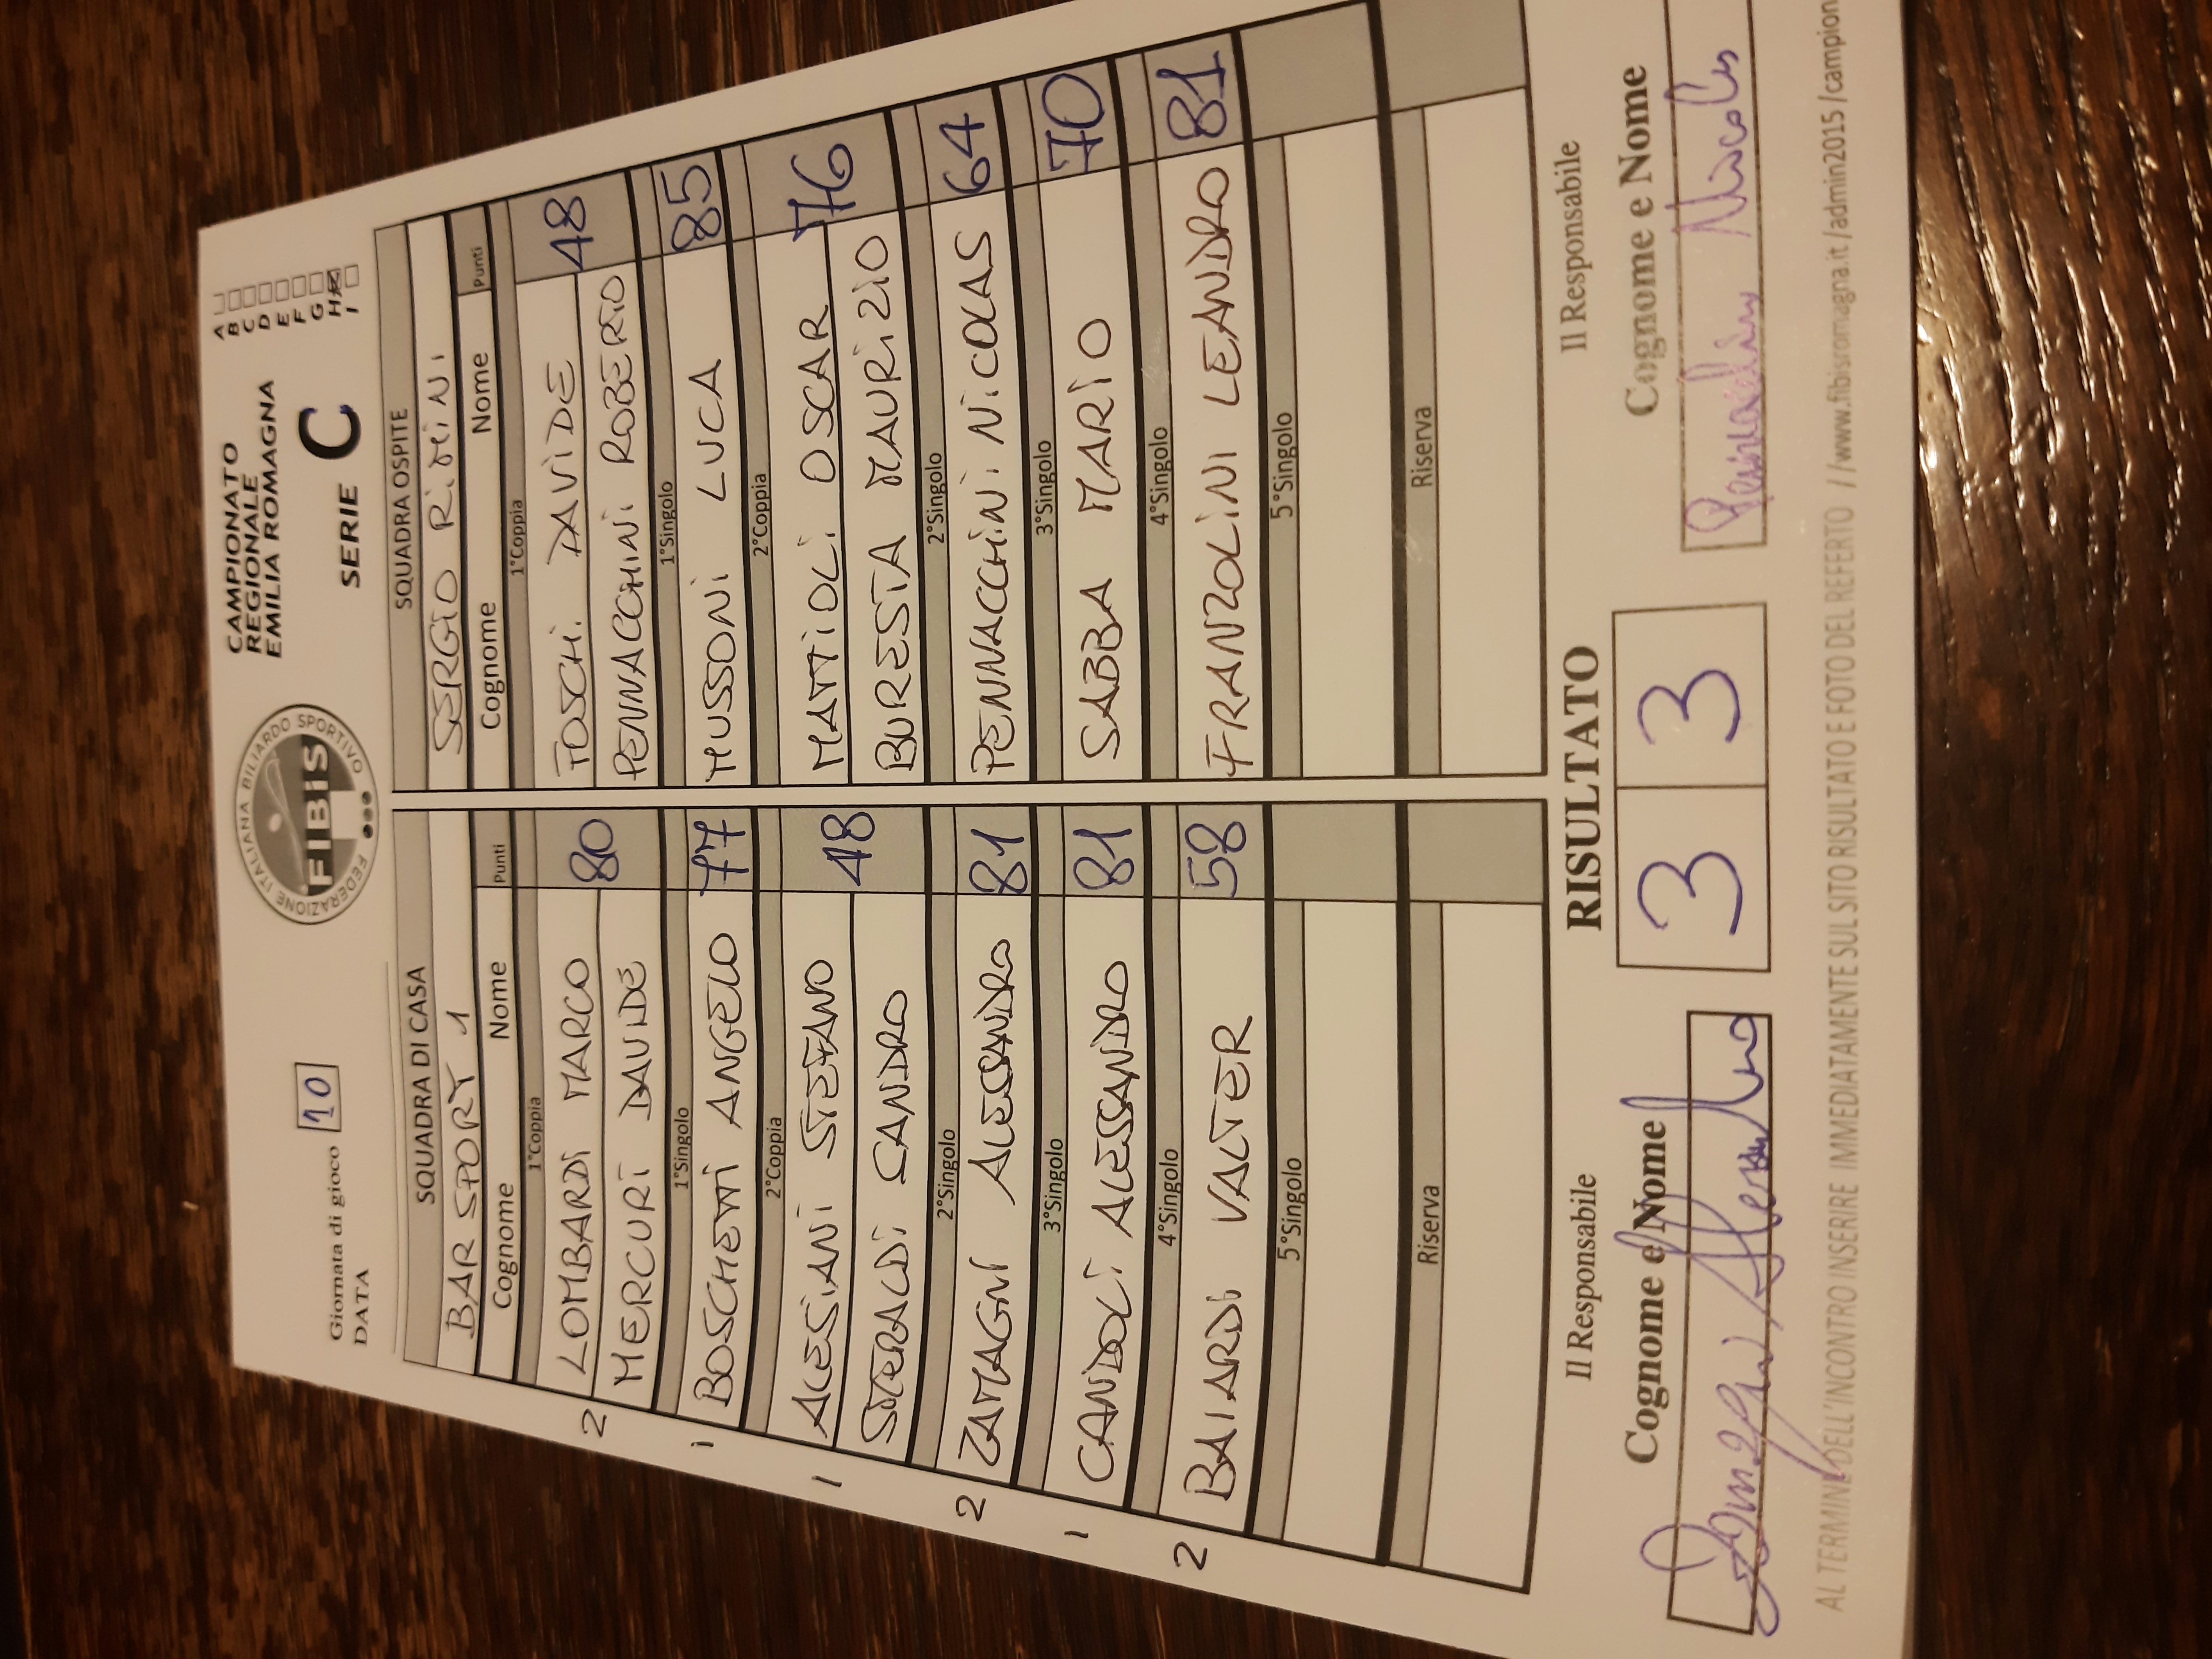 Giornata di gioco 10
DATA
FEDERAZIONE ITALIANA BILIARDO SPORTIVO
FIBiS
CAMPIONATO
REGIONALE
EMILIA ROMAGNA
SERIE C
A
B
C
D
E
F
G
H
I
SQUADRA DI CASA
BAR SPORT 1
Cognome Nome Punti
1°Coppia
2 LOMBARDI MARCO 80
MERCURI DAVIDE
1°Singolo
1 BOSCHETTI ANGELO 77
2°Coppia
1 ALESIANI STEFANO 48
SANDRO
2°Singolo
2 ZAMAGNI ALESSANDRO 81
3°Singolo
1 CANDOLI ALESSANDRO 81
4°Singolo
2 BAIARDI VALTER 58
5°Singolo
Riserva
SQUADRA OSPITE
SERGIO RIMINI
Cognome Nome Punti
1°Coppia
FOSCHI DAVIDE 48
PENNACCHINI ROBERTO
1°Singolo
MUSSONI LUCA 85
2°Coppia
MATTIOLI OSCAR 76
BURESTA MAURIZIO
2°Singolo
PENNACCHINI NICOLAS 64
3°Singolo
SABBA MARIO 70
4°Singolo
FRANZOLINI LEANDRO 81
5°Singolo
Riserva
Il Responsabile RISULTATO Il Responsabile
Cognome e Nome 3 3 Cognome e Nome
AL TERMINE DELL'INCONTRO INSERIRE IMMEDIATAMENTE SUL SITO RISULTATO E FOTO DEL REFERTO //www.fibisromagna.it /admin2015 /campion